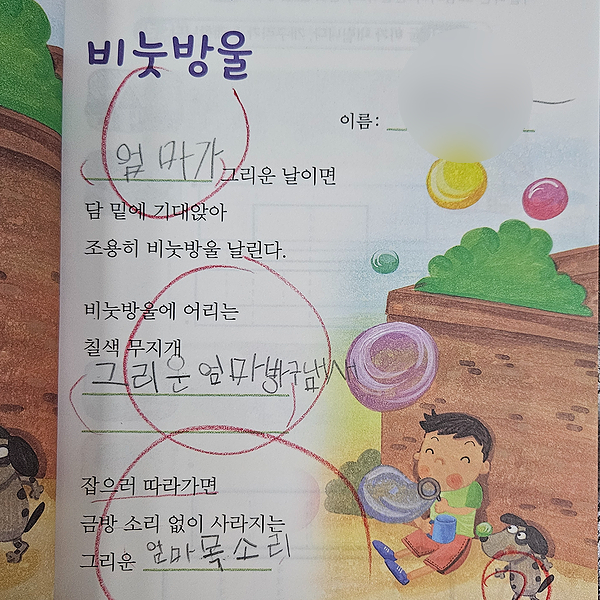 비눗방울
이름:
엄마가 그리운 날이면
담 밑에 기대앉아
조용히 비눗방울 날린다.
비눗방울에 어리는
칠색 무지개
그리운 엄마방구냄사
잡으러 따라가면
금방 소리 없이 사라지는
그리운 엄마목소리